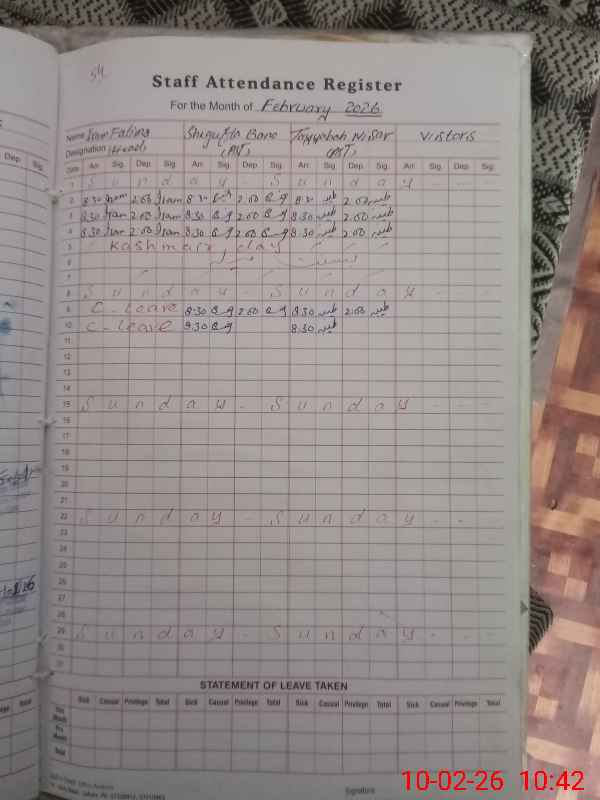 54
Staff Attendance Register
For the Month of February 2026
Name Iram Fatima Shagufta Bano Tayyabah Nisar Vistors
Designation Head (PST) (PST)
Date Arr. Sig. Dep. Sig. Arr. Sig. Dep. Sig. Arr. Sig. Dep. Sig. Arr. Sig. Dep. Sig.
1 Sunday - Sunday - - -
2 8.30 Iram 2.00 Iram 8.30 2.00 8.30 طیبہ 2.00 طیبہ
3 8.30 Iram 2.00 Iram 8.30 2.00 8.30 طیبہ 2.00 طیبہ
4 8.30 Iram 2.00 Iram 8.30 2.00 8.30 طیبہ 2.00 طیبہ
5 Kashmair day
6
7
8 Sunday - Sunday - - -
9 C - Leave 8.30 2.00 8.30 طیبہ 2.00 طیبہ
10 C - Leave 8.30 8.30 طیبہ
11
12
13
14
15 Sunday - Sunday - - -
16
17
18
19
20
21
22 Sunday - Sunday - - -
23
24
25
26
27
28
29 Sunday - Sunday - - -
30
31
STATEMENT OF LEAVE TAKEN
Sick Casual Privilege Total Sick Casual Privilege Total Sick Casual Privilege Total Sick Casual Privilege Total
Month
Month
Total
Signature
10-02-26 10:42